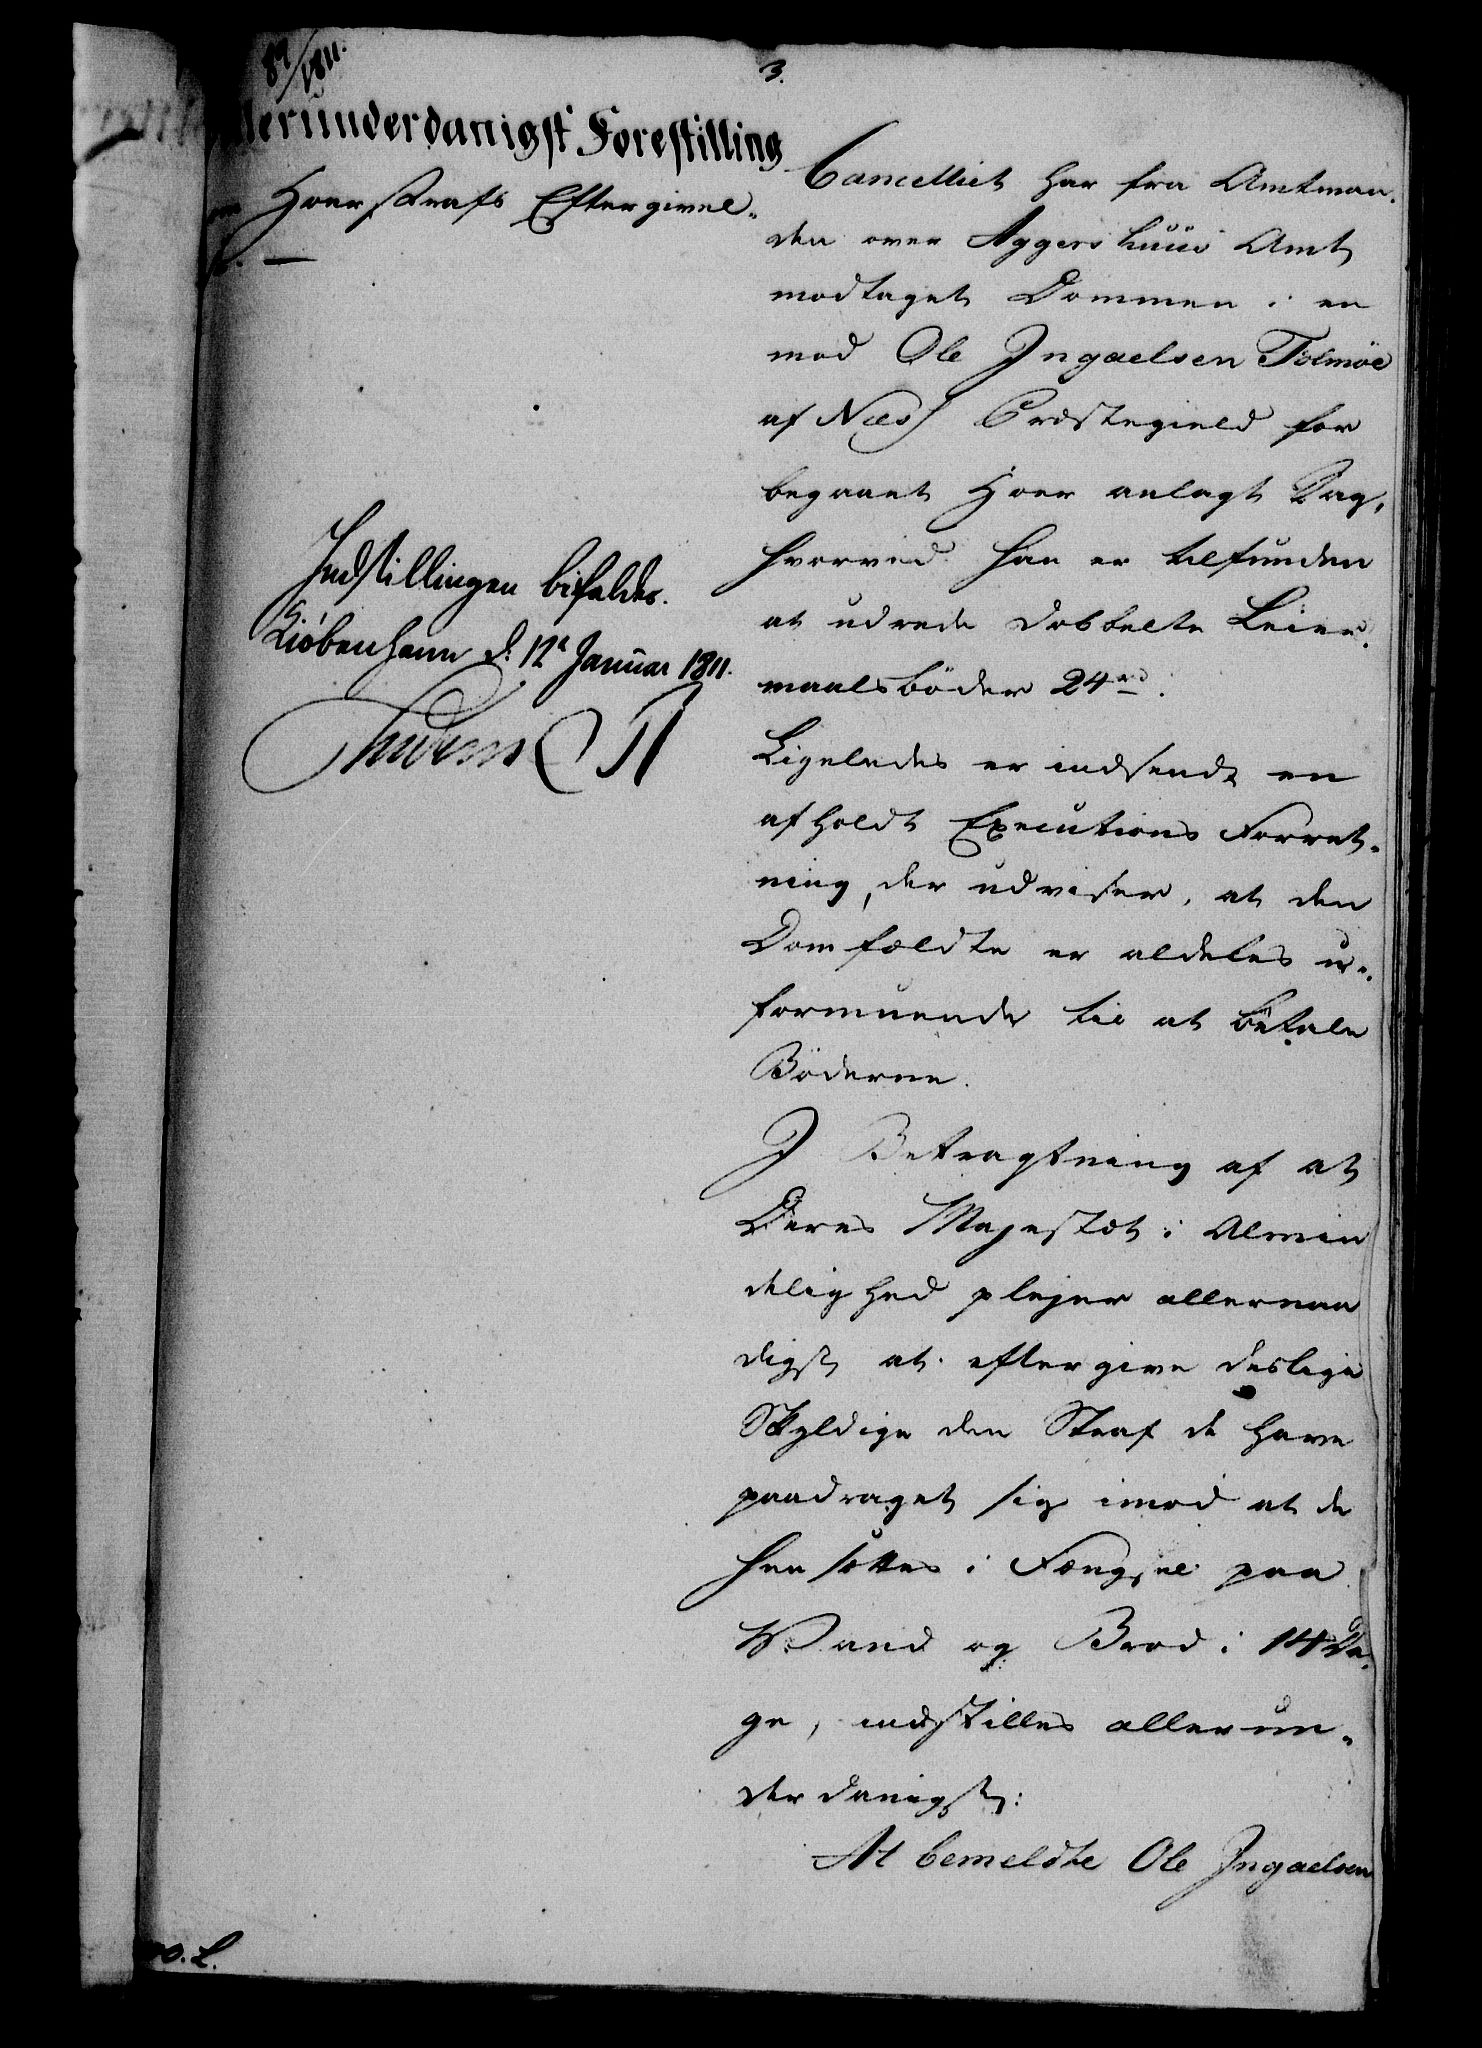 89/1811.
3.
llerunderdanigst Forestilling
om Hoer Strafs Eftergivel-
se. —
Indstillingen bifaldes.
Kiöbenhavn d: 12te Januar 1811.
Frideric R
Cancelliet har fra Amtman-
den over Aggershuus Amt
modtaget Dommen i en
mod Ole Ingaelsen Tolmöe
af Næss Præstegield for
begaaet Hoer anlagt Sag,
hvorved han er tilfunden
at udrede dobbelte Leier-
maalsböder 24 rd.
Ligeledes er indsendt en
afholdt Executions Forret-
ning, der udviser, at den
Domfældte er aldeles u-
formuende til at betale
Böderne.
I Betragtning af at
Deres Majestæt i Almin
delighed plejer allernaa
digst at eftergive deslige
Skyldige den Straf de have
paadraget sig imod at de
hensættes i Fængsel paa
Vand og Brød i 14 Da-
ge, indstilles allerun-
derdanigst:
At bemeldte Ole Ingaelsen